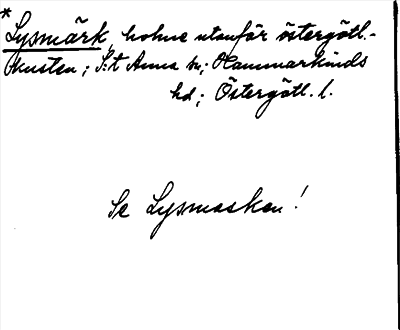 * Lysmärk, holme utanför östergötl.-
kusten; S:t Anna sn; Hammarkinds
hd; Östergötl. l.
Se Lysmasken!